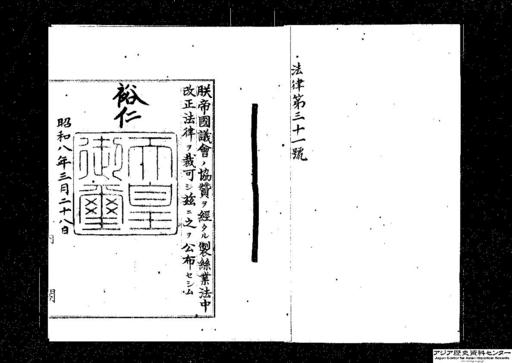 法律第三十一號
朕帝國議會ノ協贊ヲ經タル製絲業法中
改正法律ヲ裁可シ茲ニ之ヲ公布セシム
裕仁
天皇
御璽
昭和八年三月二十八日
アジア歴史資料センター
Japan Center for Asian Historical Records